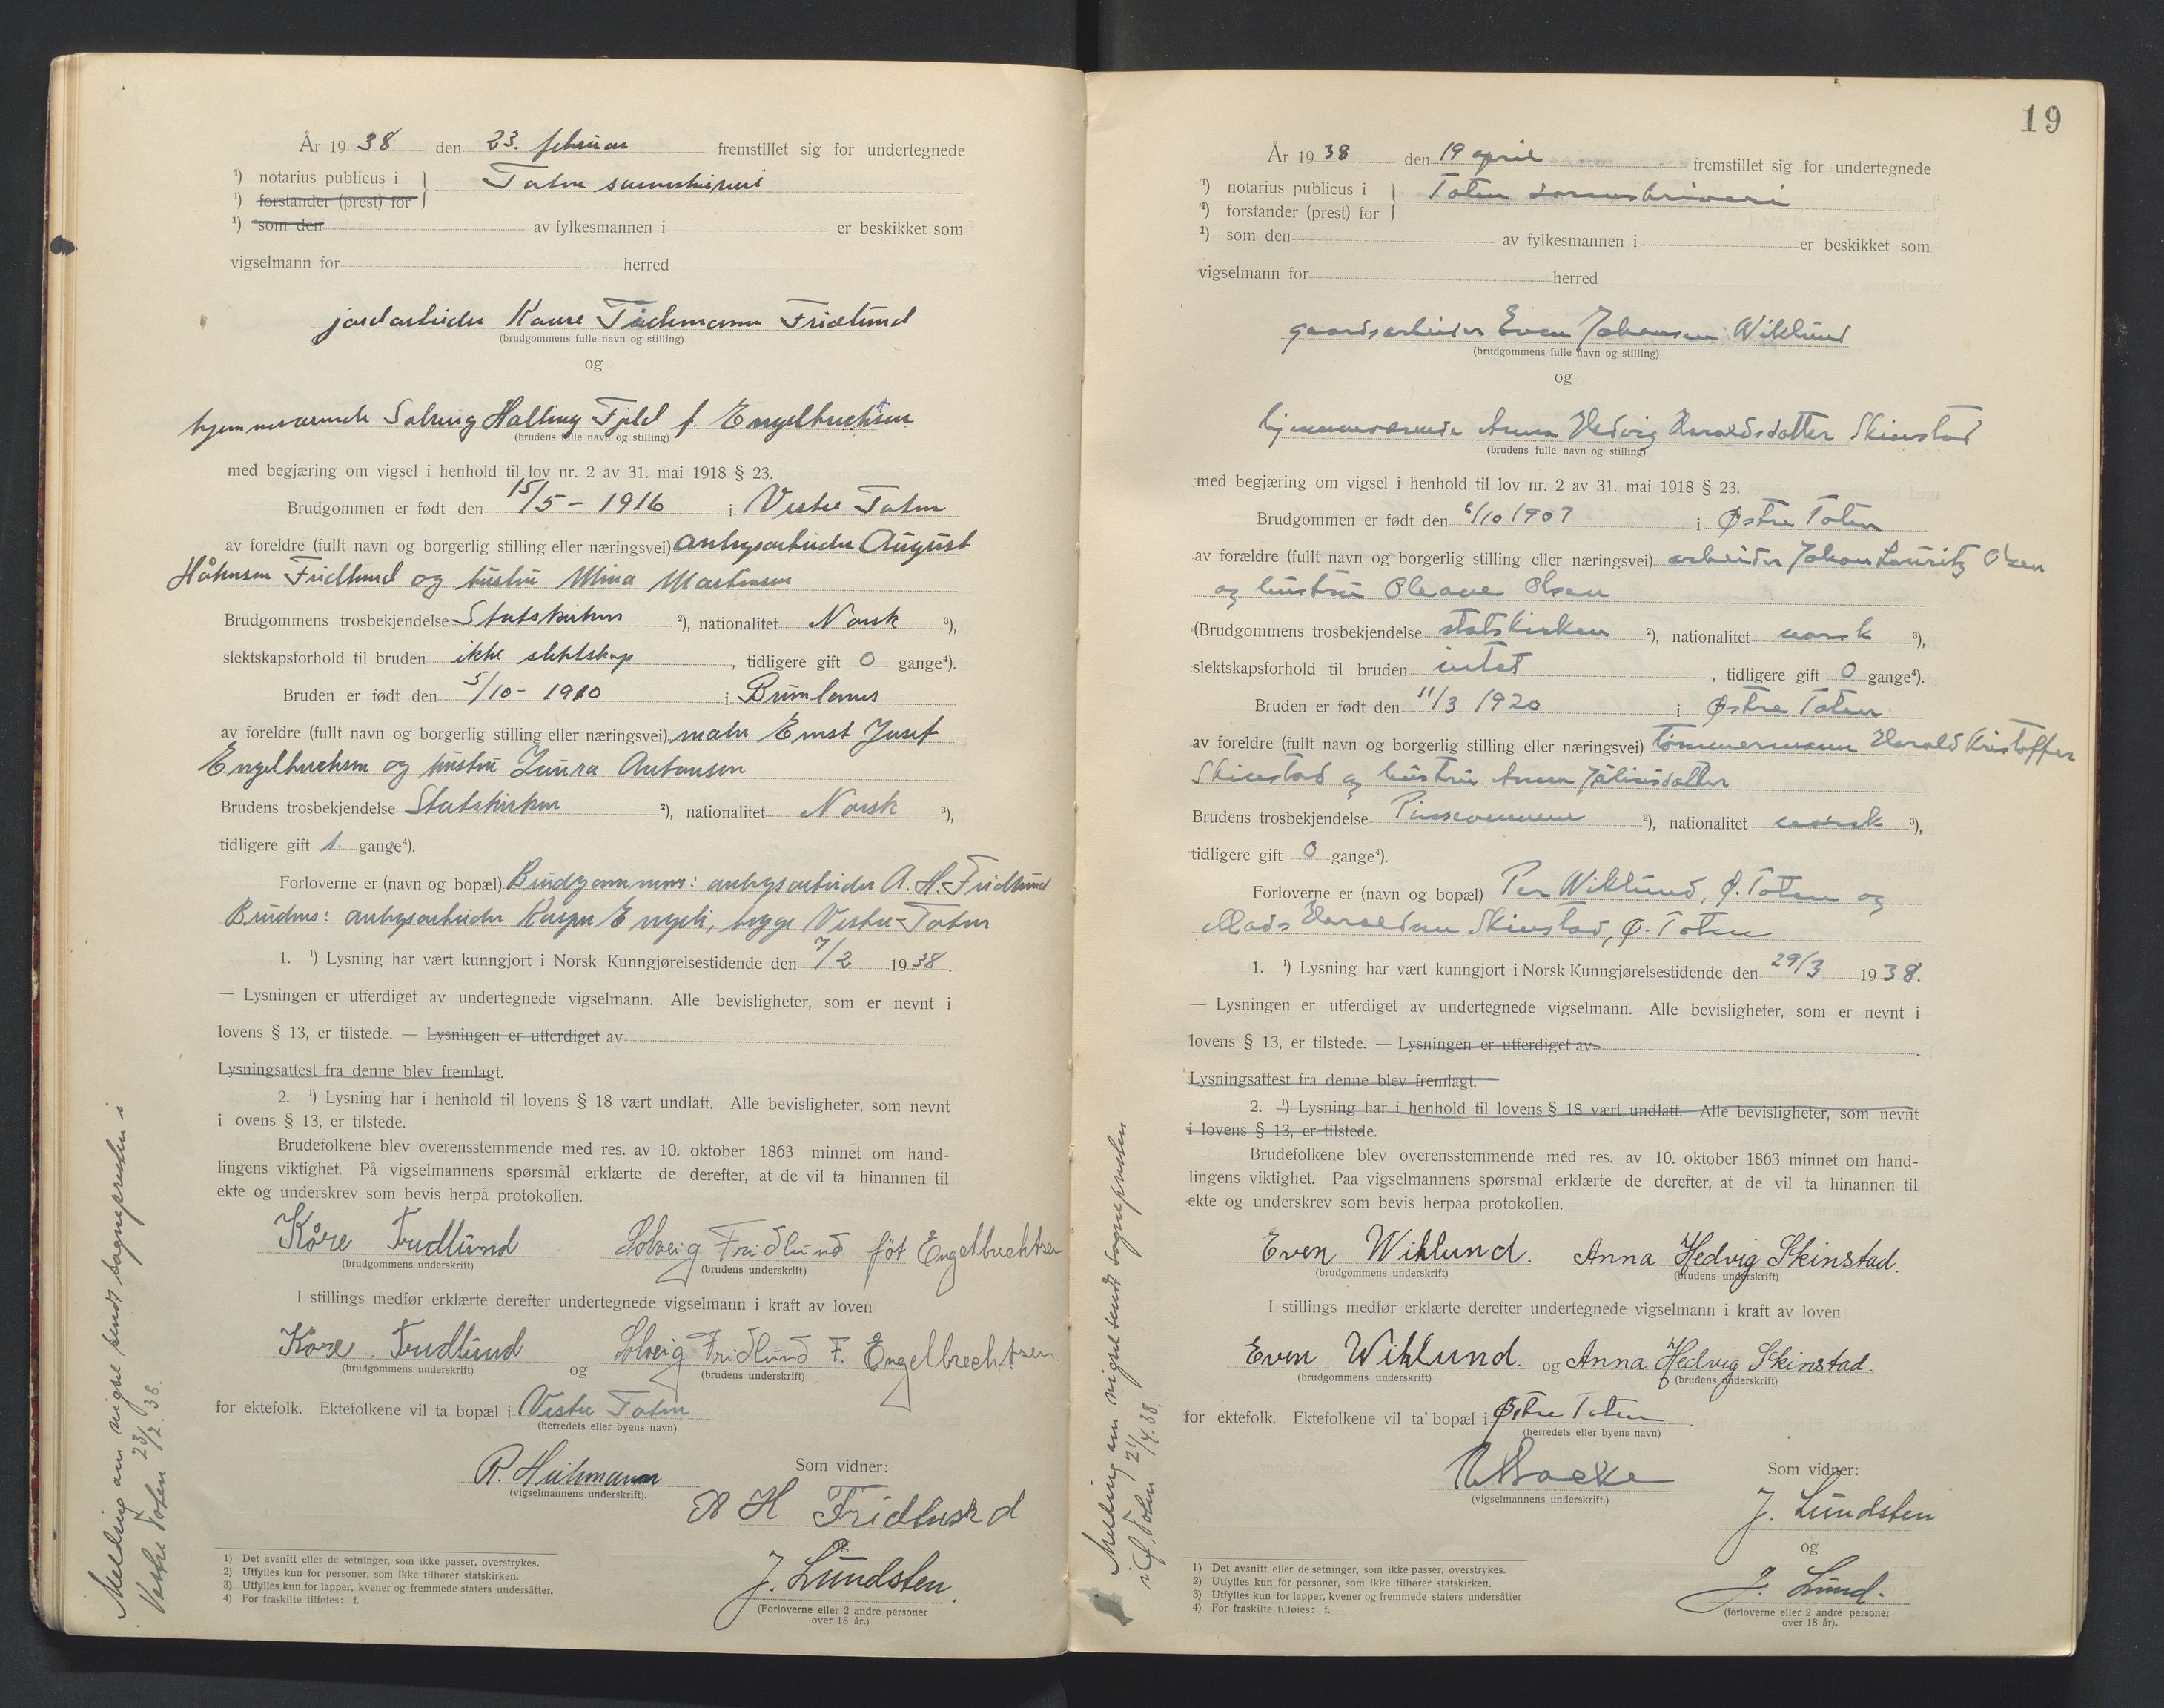 År 19 38 den 23. februar fremstillet sig for undertegnede
¹) notarius publicus i Toten sorenskriveri
¹) forstander (prest) for
¹) som den av fylkesmannen i er beskikket som
vigselmann for herred
jordarbeider Kaare Fridlund
(brudgommens fulle navn og stilling)
og
hjemmeværende Solveig Halling Fjeld f. Engelbrechtsen
(brudens fulle navn og stilling)
med begjæring om vigsel i henhold til lov nr. 2 av 31. mai 1918 § 23.
Brudgommen er født den 15/5 - 1916 i Vestre Toten
av foreldre (fullt navn og borgerlig stilling eller næringsvei) anlegsarbeider August
Håkensen Fridlund og hustru Mina Martinsen
Brudgommens trosbekjendelse Statskirken ²), nationalitet Norsk ³),
slektskapsforhold til bruden ikke slektskap, tidligere gift 0 gange⁴).
Bruden er født den 5/10 - 1910 i Brunlanes
av foreldre (fullt navn og borgerlig stilling eller næringsvei) maler Ernst Josef
Engelbrechtsen og hustru Laura Antonsen
Brudens trosbekjendelse Statskirken ²), nationalitet Norsk ³),
tidligere gift 1. gange⁴).
Forloverne er (navn og bopæl) Brudgommens: anlegsarbeider A. H. Fridlund
Brudens: anlegsarbeider Kasper Engeli, begge Vestre-Toten
1. ¹) Lysning har vært kunngjort i Norsk Kunngjørelsestidende den 7/2 1938.
— Lysningen er utferdiget av undertegnede vigselmann. Alle bevisligheter, som er nevnt i
lovens § 13, er tilstede. — Lysningen er utferdiget av
Lysningsattest fra denne blev fremlagt.
2. ¹) Lysning har i henhold til lovens § 18 vært undlatt. Alle bevisligheter, som nevnt
i ovens § 13, er tilstede.
Brudefolkene blev overensstemmende med res. av 10. oktober 1863 minnet om hand-
lingens viktighet. På vigselmannens spørsmål erklærte de derefter, at de vil ta hinannen til
ekte og underskrev som bevis herpå protokollen.
Kåre Fridlund Solveig Fridlund föt Engelbrechtsen
(brudgommens underskrift) (brudens underskrift)
I stillings medfør erklærte derefter undertegnede vigselmann i kraft av loven
Kåre Fridlund og Solveig Fridlund F. Engelbrechtsen
(brudgommens underskrift) (brudens underskrift)
for ektefolk. Ektefolkene vil ta bopæl i Vestre Toten
(herredets eller byens navn)
(vigselmannens underskrift).
Som vidner:
A H Fridlund
J. Lundsten.
(Forloverne eller 2 andre personer
over 18 år.)
1) Det avsnitt eller de setninger, som ikke passer, overstrykes.
2) Utfylles kun for personer, som ikke tilhører statskirken.
3) Utfylles kun for lapper, kvener og fremmede staters undersåtter.
4) For fraskilte tilføies: f.
Melding om vigsel sendt sognepresten i
Vestre Toten 23/2. 38.
19
År 19 38 den 19 april fremstillet sig for undertegnede
¹) notarius publicus i Toten sorenskriveri
¹) forstander (prest) for
¹) som den av fylkesmannen i er beskikket som
vigselmann for herred
gaardsarbeider Even Johansen Wiklund
(brudgommens fulle navn og stilling)
og
hjemmeværende Anna Hedvig Haraldsdatter Skinstad
(brudens fulle navn og stilling)
med begjæring om vigsel i henhold til lov nr. 2 av 31. mai 1918 § 23.
Brudgommen er født den 6/10 1907 i Østre Toten
av forældre (fullt navn og borgerlig stilling eller næringsvei) arbeider Johan Lauritz Olsen
og hustru Oleane Olsen
(Brudgommens trosbekjendelse statskirken ²), nationalitet norsk ³),
slektskapsforhold til bruden intet, tidligere gift 0 gange⁴).
Bruden er født den 11/3 1920 i Østre Toten
av foreldre (fullt navn og borgerlig stilling eller næringsvei) tømmermann Harald Kristoffer
Skinstad og hustru Anna Juliusdatter
Brudens trosbekjendelse Pinsevennene ²), nationalitet norsk ³),
tidligere gift 0 gange⁴).
Forloverne er (navn og bopæl) Per Wiklund, Ø. Toten og
Mads Haraldsen Skinstad, Ø. Toten
1. ¹) Lysning har vært kunngjort i Norsk Kunngjørelsestidende den 29/3 1938.
— Lysningen er utferdiget av undertegnede vigselmann. Alle bevisligheter, som er nevnt i
lovens § 13, er tilstede. — Lysningen er utferdiget av
Lysningsattest fra denne blev fremlagt.
2. ¹) Lysning har i henhold til lovens § 18 vært undlatt. Alle bevisligheter, som nevnt
i lovens § 13, er tilstede.
Brudefolkene blev overensstemmende med res. av 10. oktober 1863 minnet om hand-
lingens viktighet. Paa vigselmannens spørsmål erklærte de derefter, at de vil ta hinannen til
ekte og underskrev som bevis herpaa protokollen.
Even Wiklund. Anna Hedvig Skinstad.
(brudgommens underskrift) (brudens underskrift)
I stillings medfør erklærte derefter undertegnede vigselmann i kraft av loven
Even Wiklund. og Anna Hedvig Skinstad.
(brudgommens underskrift) (brudens underskrift)
for ektefolk. Ektefolkene vil ta bopæl i Østre Toten.
(herredets eller byens navn)
(vigselmannens underskrift.)
Som vidner:
J. Lundsten
og
J. Lund.
(forloverne eller 2 andre personer
over 18 år).
1) Det avsnitt eller de setninger, som ikke passer, overstrykes.
2) Utfylles kun for personer, som ikke tilhører statskirken.
3) Utfylles kun for lapper, kvener og fremmede staters undersåtter
4) For fraskilte tilføies: f.
Melding om vigsel sendt sognepresten
i Ø. Toten 21/4. 38.